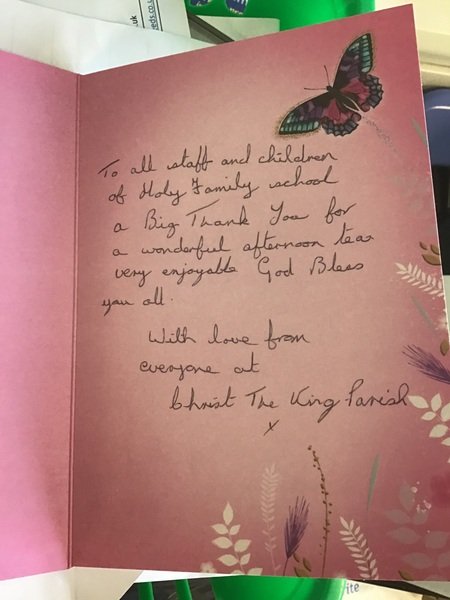 To all staff and children
of Holy Family school
a Big Thank You for
a wonderful afternoon tea
very enjoyable God Bless
you all.
With love from
everyone at
Christ The King Parish
x
eds.co.u
.uk
ite